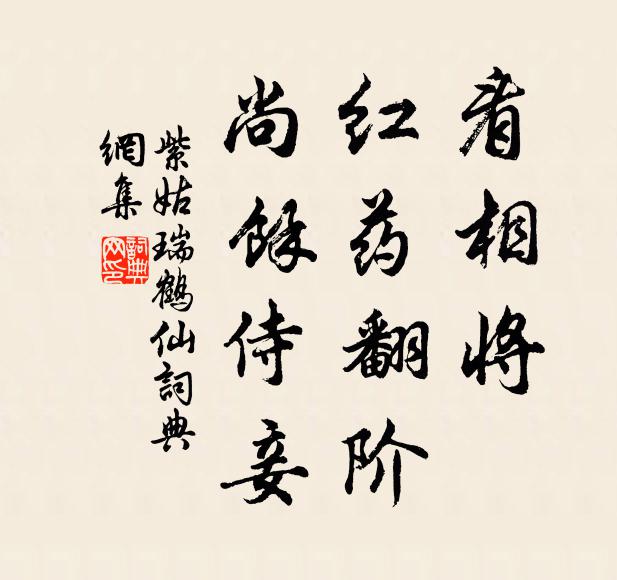 看相将
红药翻阶
尚馀侍妾
紫姑瑞鹤仙词典
網集
詞典
网印